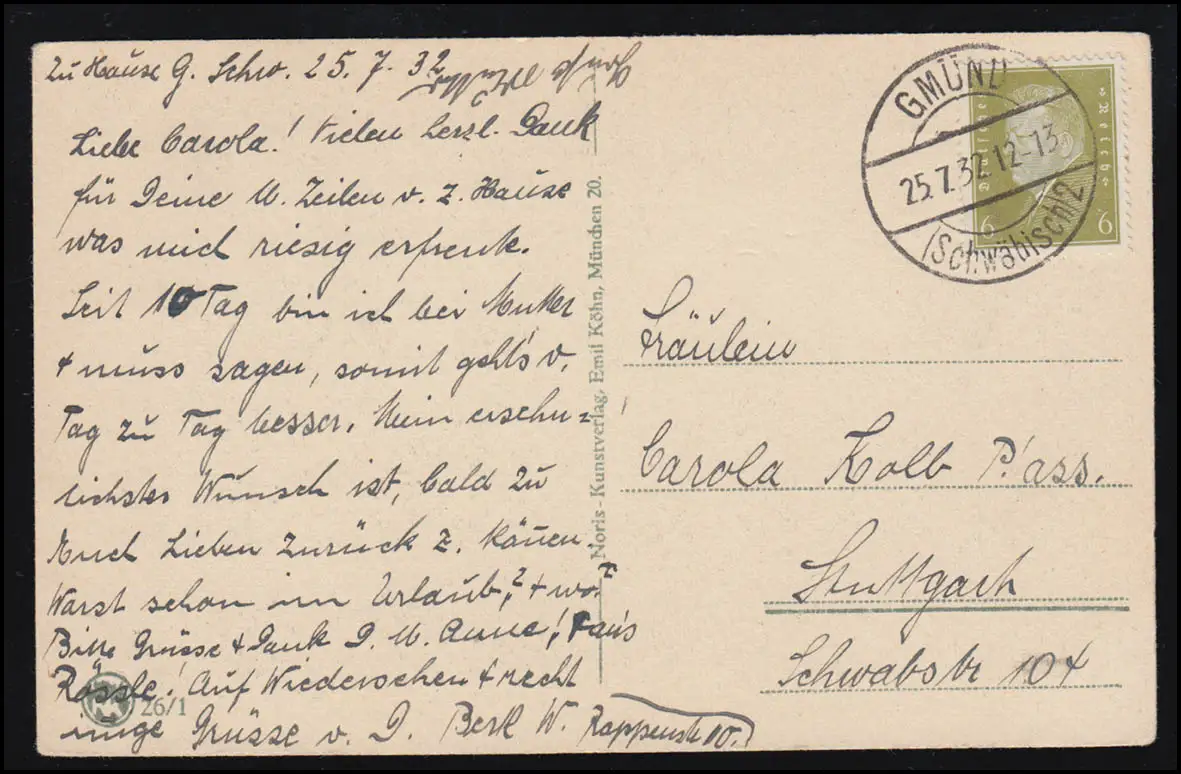 Zu Hause G. Schw. 25. 7. 32
Liebe Carola! Vielen herzl. Dank
für Deine l. Zeilen v. z. Hause
was mich riesig erfreut.
Seit 10 Tag bin ich bei Mutter
+ muss sagen, somit geht's v.
Tag zu Tag besser. Mein ersehn=
lichster Wunsch ist, bald zu
Euch Lieben zurück z. können.
Warst schon im Urlaub? + wo?
Bitte Grüsse + Dank D. l. Anne!
Rössle! Auf Wiedersehen + recht
innige Grüsse v. D. W. Rappenstr 10.
Noris-Kunstverlag, Emil Köhn, München 20.
26/1
GMÜND
25.7.32.12-13
(Schwäbisch) 2
Deutsches Reich
6 6
Fräulein
Carola Kolb P.'ass.
Stuttgart
Schwabstr 104